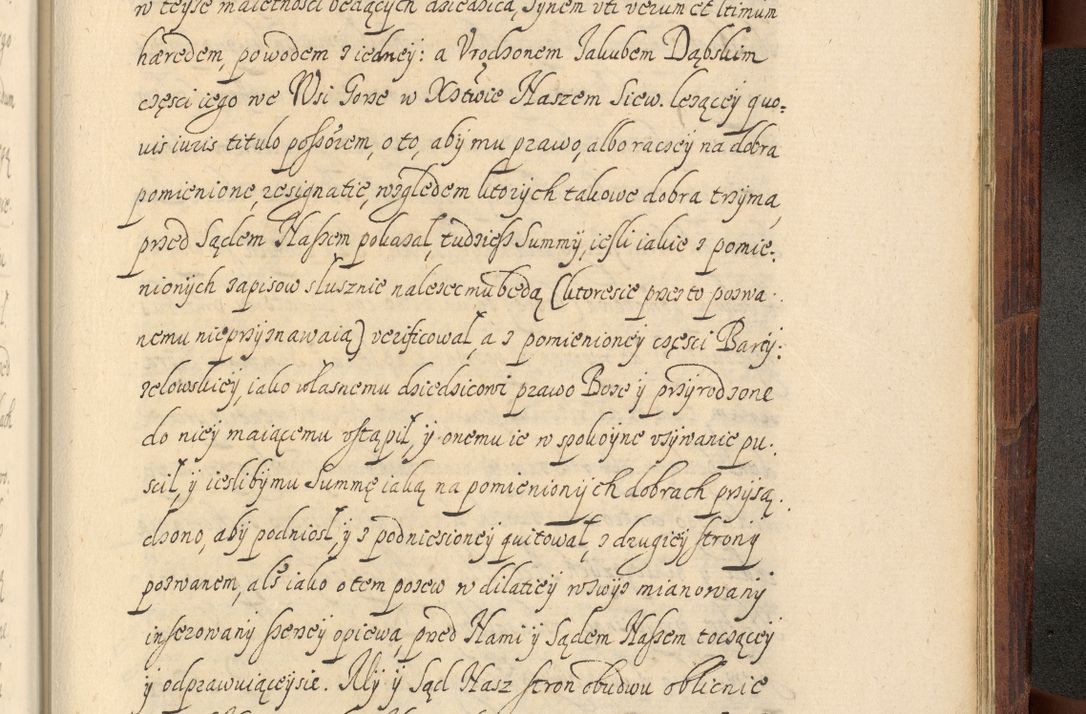 w teyże maietności będących dziedzica, Synem vti verum et ltimum
hæredem, powodem z iedney: a Vrodzonem Jakubem Dąbskim
części iego we Wsi Gorze w Xstwie Naszem Siew. leżącey quo-
uis iuris titulo possorem, o to, aby mu prawo, albo raczey na dobra
pomienione, resignatie, względem ktorych takowe dobra trzyma,
przed Sądem Naszem pokazał, tudziesz Summy, iesli iakie z pomie-
nionych zapisow słusznie należec mu będą (ktoresie przez to pozwa-
nemu nieprzyznawaią) verificował, a z pomienioney części Barcy-
zelowskiey, iako własnemu dziedzicowi prawo Boże y przyrodzone
do niey maiącemu vstąpił, y onemu ie w spokoyne vżywanie pu-
scił, y ieslibymu Summę iaką na pomienionych dobrach przysą-
dzono, aby podniosł, y z podniesioney quitował, z drugiey strony
pozwanem, ale iako o tem pozew w dilatiey wzwyż mianowany
inserowany szerzey opiewa, przed Nami y Sądem Naszem toczącey
y odprawuiąceysie. My y Sąd Nasz stron obudwu oblicznie